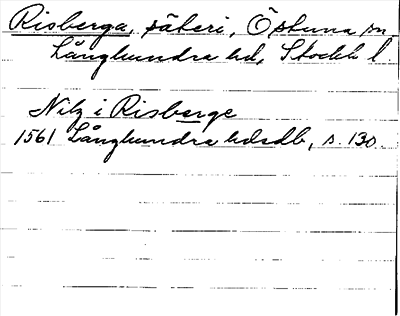 Risberga, säteri, Östuna sn
Långhundra hd, Stockh l.
Nilz i Risberge
1561 Långhundra hdsdb, s. 130.